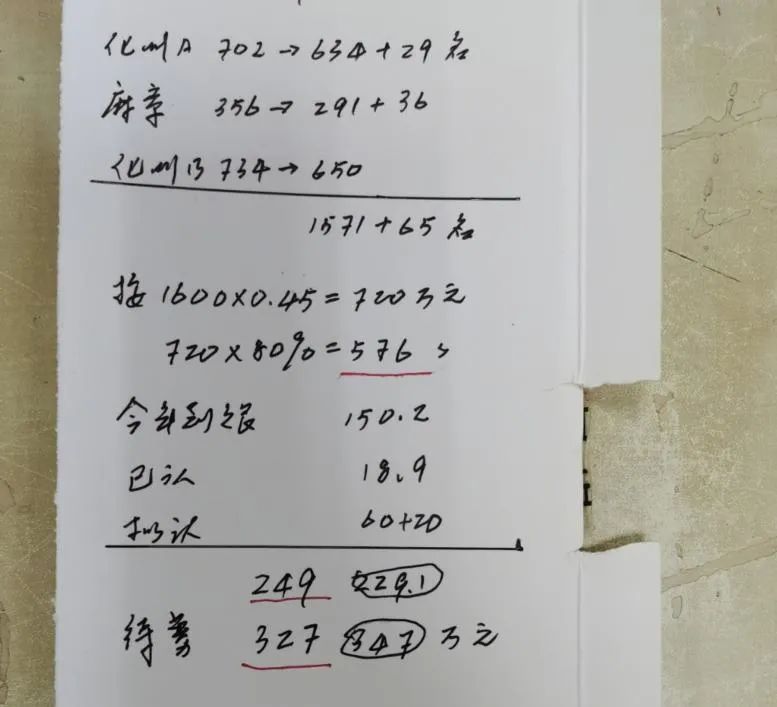 化州A 702→634+29名
麻章 356→291+36
化州B 734→650
1571+65名
按1600×0.45=720万元
720×80%=576
今年到账 150.2
已认 18.9
拟认 60+20
249 229.1
待募 327 347 万元